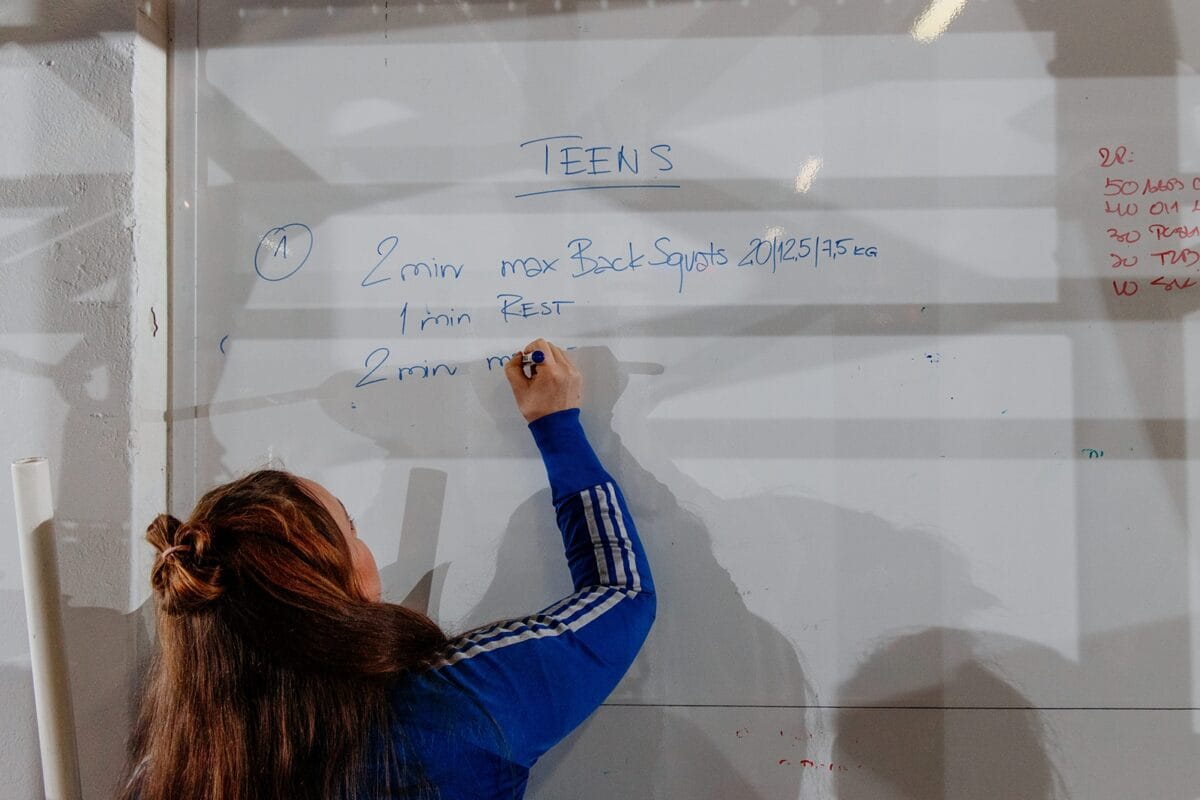 TEENS
1
2 min max Back Squats 20/12,5/7,5 KG
1 min REST
2 min
2R:
50
40
30
20
10